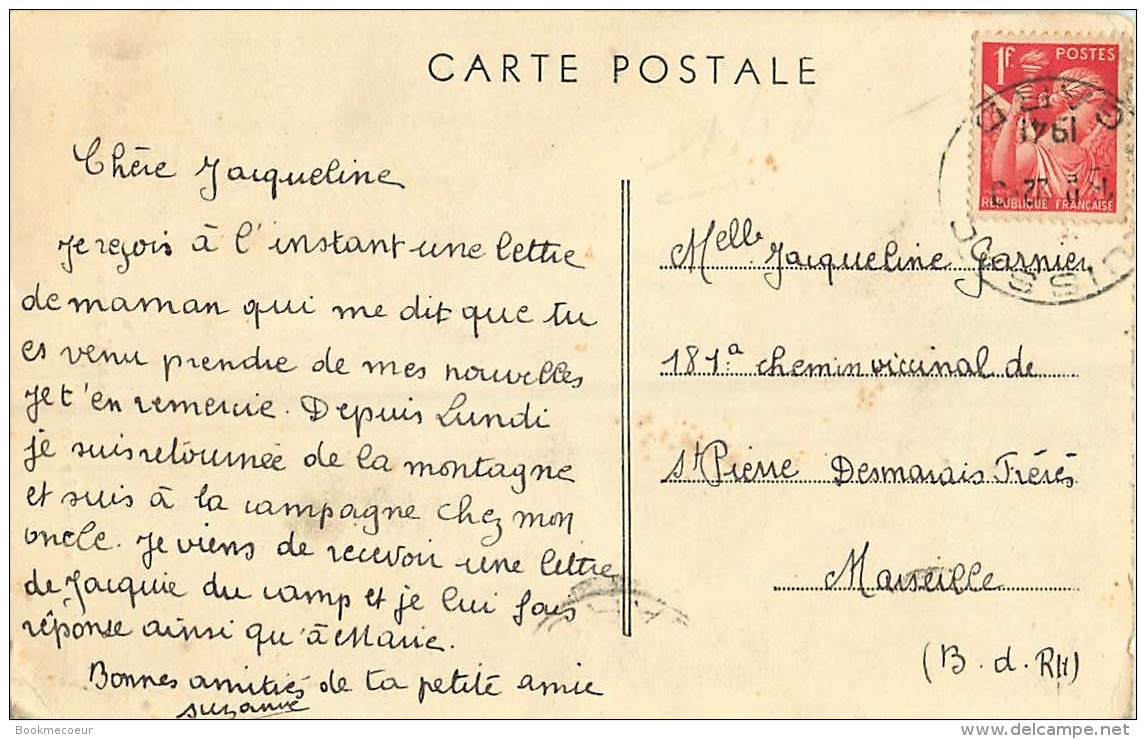 CARTE POSTALE
1F. POSTES
RÉPUBLIQUE FRANÇAISE
GARD
1941
Chère Jacqueline
Je reçois à l'instant une lettre
de maman qui me dit que tu
es venu prendre de mes nouvelles
Je t'en remercie. Depuis Lundi
je suis retournée de la montagne
et suis à la campagne chez mon
oncle. Je viens de recevoir une lettre
de Jacquie du camp et je lui fais
réponse ainsi qu'à Marie.
Bonnes amitiés de ta petite amie
suzanne
Melle Jacqueline Garnier
181a chemin viccinal de
St Pierre Desmarais Frérés
Marseille
(B. d. RH)
Bookmecoeur
www.delcampe.net